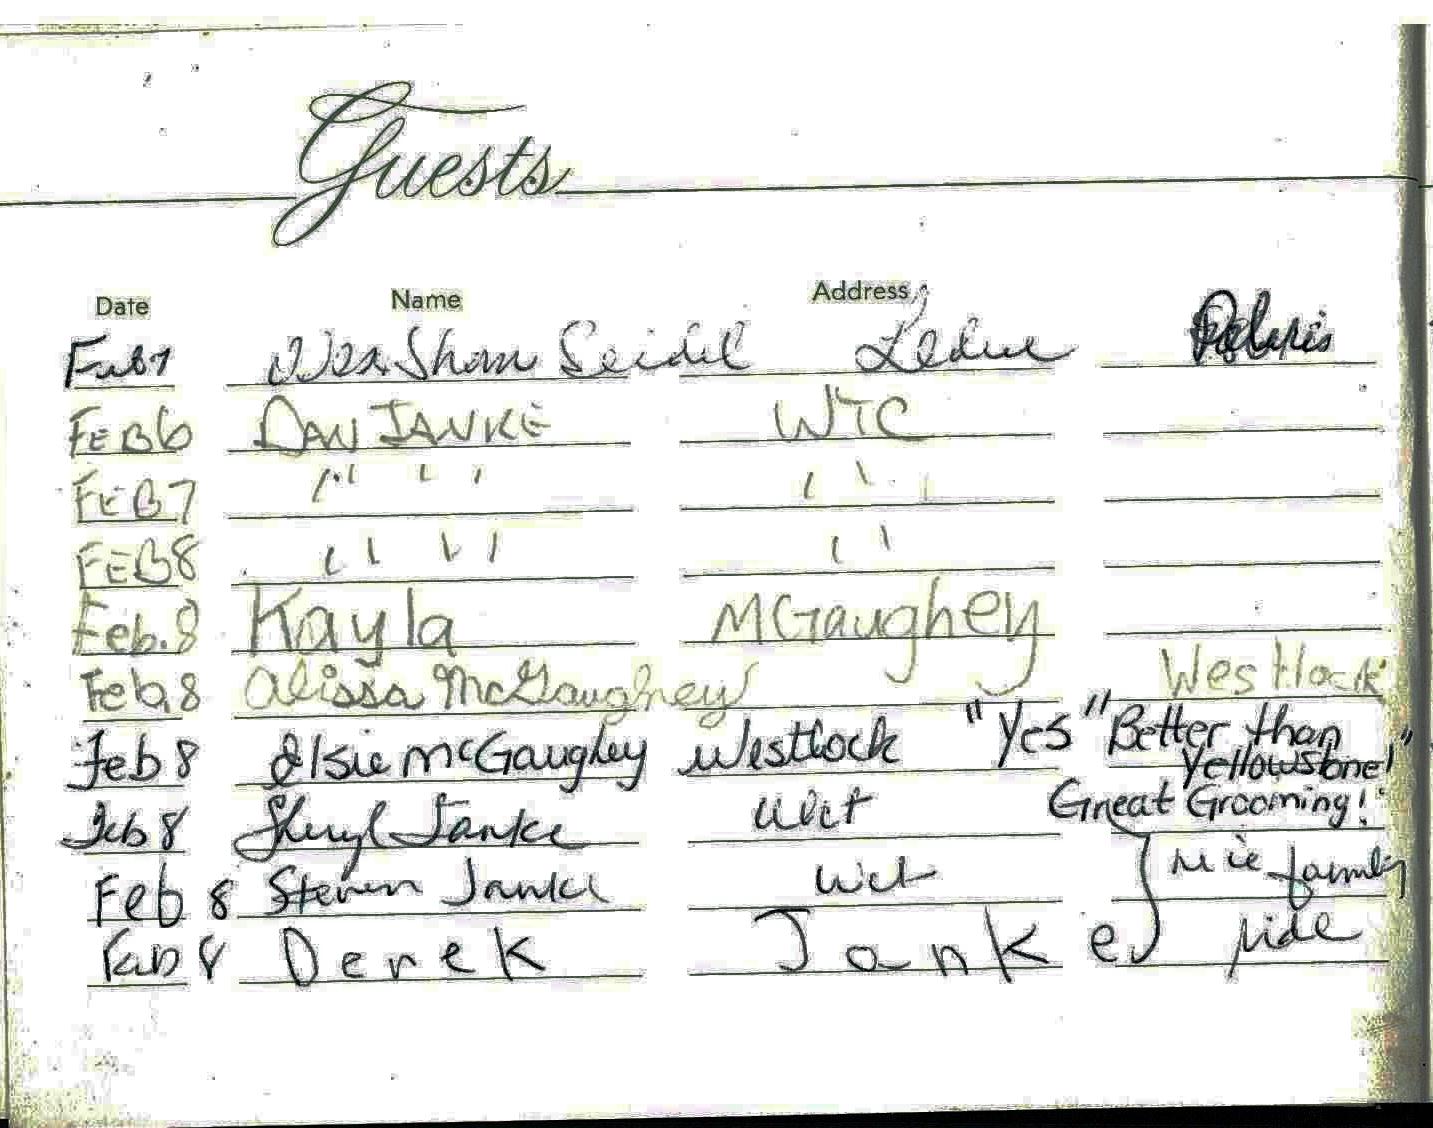 Guests
Date Name Address
Feb 7 Wes Shan Seidel Leduc Polaris
FEB 6 DAN JANKE WTC
FEB 7 " " " "
FEB 8 " " " "
Feb. 8 Kayla McGaughey
Feb. 8 Alissa McGaughey Westlock
Feb 8 Elsie McGaughey Westlock "Yes" "Better than
Yellowstone!"
Feb 8 Sheryl Janke Wet Great Grooming!
Feb 8 Steven Janke Wet } nice family
Feb 8 Derek Janke ride